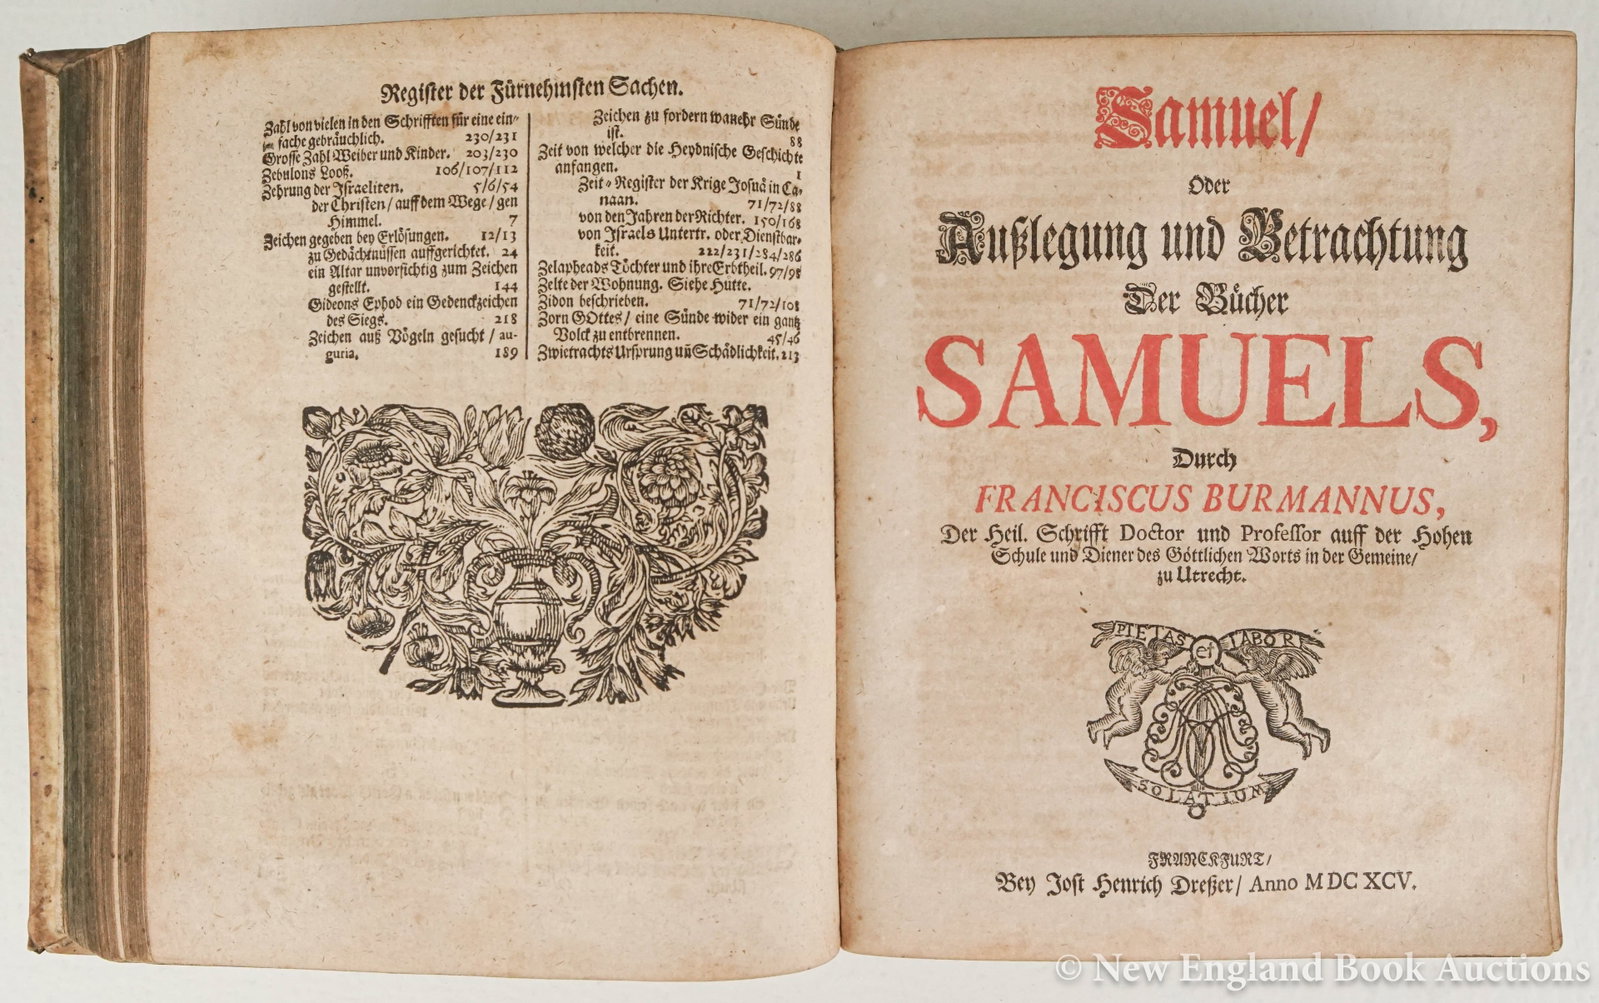 Register der Fürnehmsten Sachen.
Zahl von vielen in den Schrifften für eine ein-
fache gebräuchlich. 230/231
Grosse Zahl Weiber und Kinder. 203/230
Zebulons Looß. 106/107/112
Zehrung der Israeliten. 5/6/54
der Christen/ auff dem Wege/ gen
Himmel. 7
Zeichen gegeben bey Erlösungen. 12/13
zu Gedächtnüssen auffgerichtet. 24
ein Altar unvorsichtig zum Zeichen
gestellt. 144
Gideons Ephod ein Gedenckzeichen
des Siegs. 218
Zeichen auß Vögeln gesucht/ au-
guria. 189
Zeichen zu fordern wanehr Sünde
ist. 88
Zeit von welcher die Heydnische Geschichte
anfangen. 1
Zeit-Register der Krige Josuä in Ca-
naan. 71/72/88
von den Jahren der Richter. 150/168
von Israels Untertr. oder Dienstbar-
keit. 222/231/284/286
Zelapheads Töchter und ihre Erbtheil. 97/98
Zelte der Wohnung. Siehe Hütte.
Zidon beschrieben. 71/72/108
Zorn GOttes/ eine Sünde wider ein gantz
Volck zu entbrennen. 45/46
Zwietrachts Ursprung uñ Schädlichkeit. 213
Samuel/
Oder
Außlegung und Betrachtung
Der Bücher
SAMUELS,
Durch
FRANCISCUS BURMANNUS,
Der Heil. Schrifft Doctor und Professor auff der Hohen
Schule und Diener des Göttlichen Worts in der Gemeine/
zu Utrecht.
PIETAS et LABOR
SOLATIUM
FRANCKFURT/
Bey Jost Henrich Dreßer/ Anno MDC XCV.
© New England Book Auctions